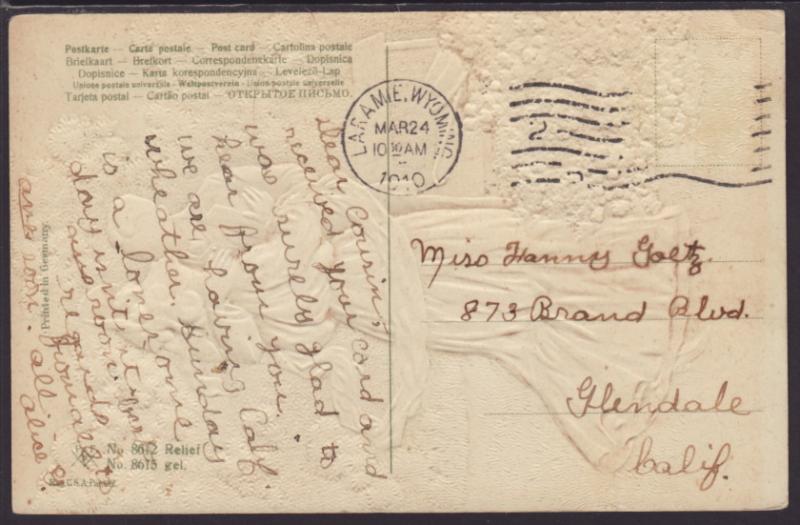 Postkarte — Carte postale — Post card — Cartolina postale
Briefkaart — Brefkort — Correspondenzkarte — Dopisnica
Dopisnice — Karta korespondencyjna — Levelező-Lap
Unione postale universale - Weltpostverein - Union postale universelle
Tarjeta postal — Cartão postal — ОТКРЫТОЕ ПИСЬМО.
LARAMIE, WYOMING
MAR 24
10 30 AM
1910
Dear Cousin,
received your card and
was surely glad to
hear from you.
we are having Calif.
wheather. Sunday
is a lonesome
day isn't it
and room.
regards
and com. all
Alice
Miss Fanny Goetz.
873 Brand Blvd.
Glendale
Calif.
Printed in Germany
No. 8612 Relief
No. 8615 gel.